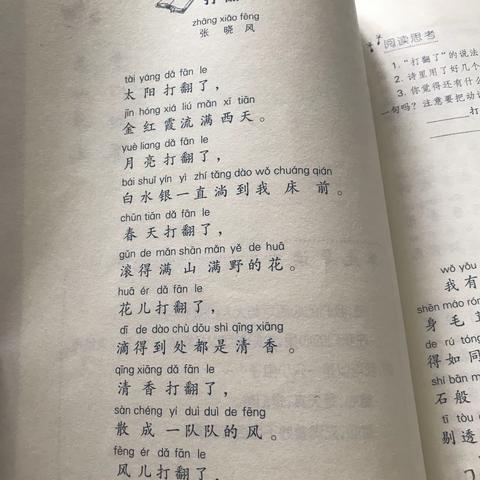 打翻
zhāng xiǎo fēng
张 晓 风
tài yáng dǎ fān le
太 阳 打 翻 了，
jīn hóng xiá liú mǎn xī tiān
金 红 霞 流 满 西 天。
yuè liang dǎ fān le
月 亮 打 翻 了，
bái shuǐ yín yì zhí tǎng dào wǒ chuáng qián
白 水 银 一 直 淌 到 我 床 前。
chūn tiān dǎ fān le
春 天 打 翻 了，
gǔn de mǎn shān mǎn yě de huā
滚 得 满 山 满 野 的 花。
huā ér dǎ fān le
花 儿 打 翻 了，
dī de dào chù dōu shì qīng xiāng
滴 得 到 处 都 是 清 香。
qīng xiāng dǎ fān le
清 香 打 翻 了，
sàn chéng yí duì duì de fēng
散 成 一 队 队 的 风。
fēng ér dǎ fān le
风 儿 打 翻 了，
阅读思考
1. “打翻了”的说法
2. 诗里用了好几个
3. 你觉得还有什么
一句吗？注意要把动词
打
wǒ yǒu
我 有
shēn máo
身 毛
de rú tóng
得 如 同
shí bān
石 般
tī tòu
剔 透